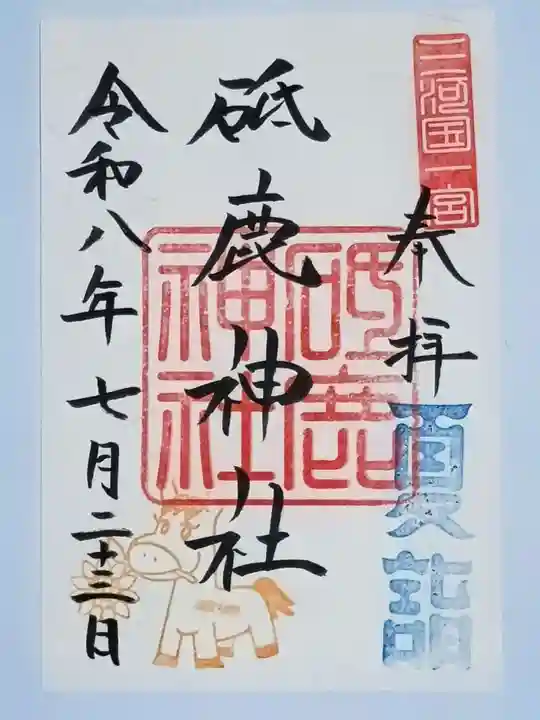 三河国一宮
奉拝
夏詣
砥鹿神社
砥鹿神社
令和八年七月二十三日